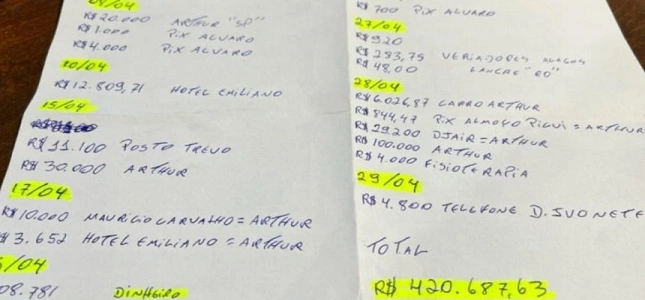 /04
R$20.000 ARTHUR "SP"
R$1.000 PIX ALVARO
R$4.000 PIX ALVARO
10/04
R$12.809,71 HOTEL EMILIANO
15/04
R$11.100 POSTO TREVO
R$30.000 ARTHUR
17/04
R$10.000 MAURICIO CARVALHO = ARTHUR
$3.652 HOTEL EMILIANO = ARTHUR
/04
08.781 DINHEIRO
R$700 PIX ALVARO
27/04
R$920
R$283,75 VERIADORES
R$48,00 LANCHE "RO"
28/04
R$6.026,87 CARRO ARTHUR
R$844,47 PIX ALMOÇO PIQUI = ARTHUR
R$29.200 DJAIR = ARTHUR
R$100.000 ARTHUR
R$4.000 FISIOTERAPIA
29/04
R$4.800 TELEFONE D. IVONETE
TOTAL
R$ 420.687,63